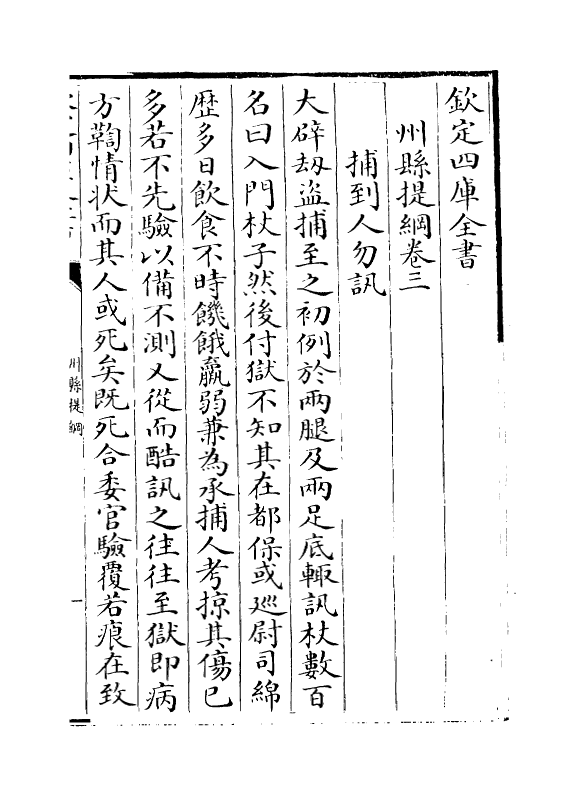 欽定四庫全書
州縣提綱卷三
捕到人勿訊
大辟刼盜捕至之初例於兩腿及兩足底輙訊杖數百
名曰入門杖子然後付獄不知其在都保或廵尉司綿
歴多日飲食不時饑餓羸弱兼為承捕人考掠其傷已
多若不先驗以備不測又從而酷訊之往往至獄即病
方鞫情状而其人或死矣既死合委官驗覆若痕在致
州縣提綱
一